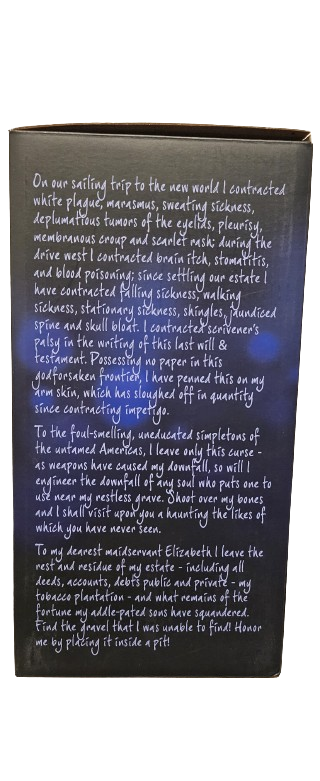 On our sailing trip to the new world I contracted
white plague, marasmus, sweating sickness,
deplumatious tumors of the eyelids, pleurisy,
membranous croup and scarlet rash; during the
drive west I contracted brain itch, stomatitis,
and blood poisoning; since settling our estate I
have contracted falling sickness, walking
sickness, stationary sickness, shingles, jaundiced
spine and skull bloat. I contracted scrivener's
palsy in the writing of this last will &
testament. Possessing no paper in this
godforsaken frontier, I have penned this on my
arm skin, which has sloughed off in quantity
since contracting impetigo.
To the foul-smelling, uneducated simpletons of
the untamed Americas, I leave only this curse -
as weapons have caused my downfall, so will I
engineer the downfall of any soul who puts one to
use near my restless grave. Shoot over my bones
and I shall visit upon you a haunting the likes of
which you have never seen.
To my dearest maidservant Elizabeth I leave the
rest and residue of my estate - including all
deeds, accounts, debts public and private - my
tobacco plantation - and what remains of the
fortune my addle-pated sons have squandered.
Find the gravel that I was unable to find! Honor
me by placing it inside a pit!